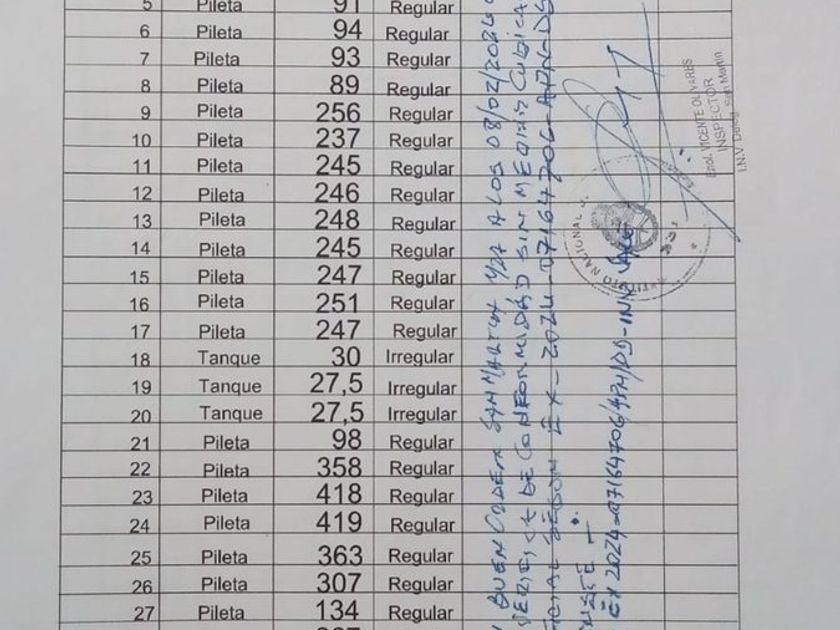 5 Pileta 91 Regular
6 Pileta 94 Regular
7 Pileta 93 Regular
8 Pileta 89 Regular
9 Pileta 256 Regular
10 Pileta 237 Regular
11 Pileta 245 Regular
12 Pileta 246 Regular
13 Pileta 248 Regular
14 Pileta 245 Regular
15 Pileta 247 Regular
16 Pileta 251 Regular
17 Pileta 247 Regular
18 Tanque 30 Irregular
19 Tanque 27,5 Irregular
20 Tanque 27,5 Irregular
21 Pileta 98 Regular
22 Pileta 358 Regular
23 Pileta 418 Regular
24 Pileta 419 Regular
25 Pileta 363 Regular
26 Pileta 307 Regular
27 Pileta 134 Regular
BUEN ORDEN SAN MARTIN MZA A LOS 08/02/202
DE CONFORMIDAD SIN MEDIR CUBICA
SEGÚN EX-2024-07164706-APN-DS
EX 2024-07164706/APN/DD-INV
INSTITUTO NACIONAL
Enol. VICENTE OLIVARES
INSPECTOR
I.N.V Deleg. San Martín